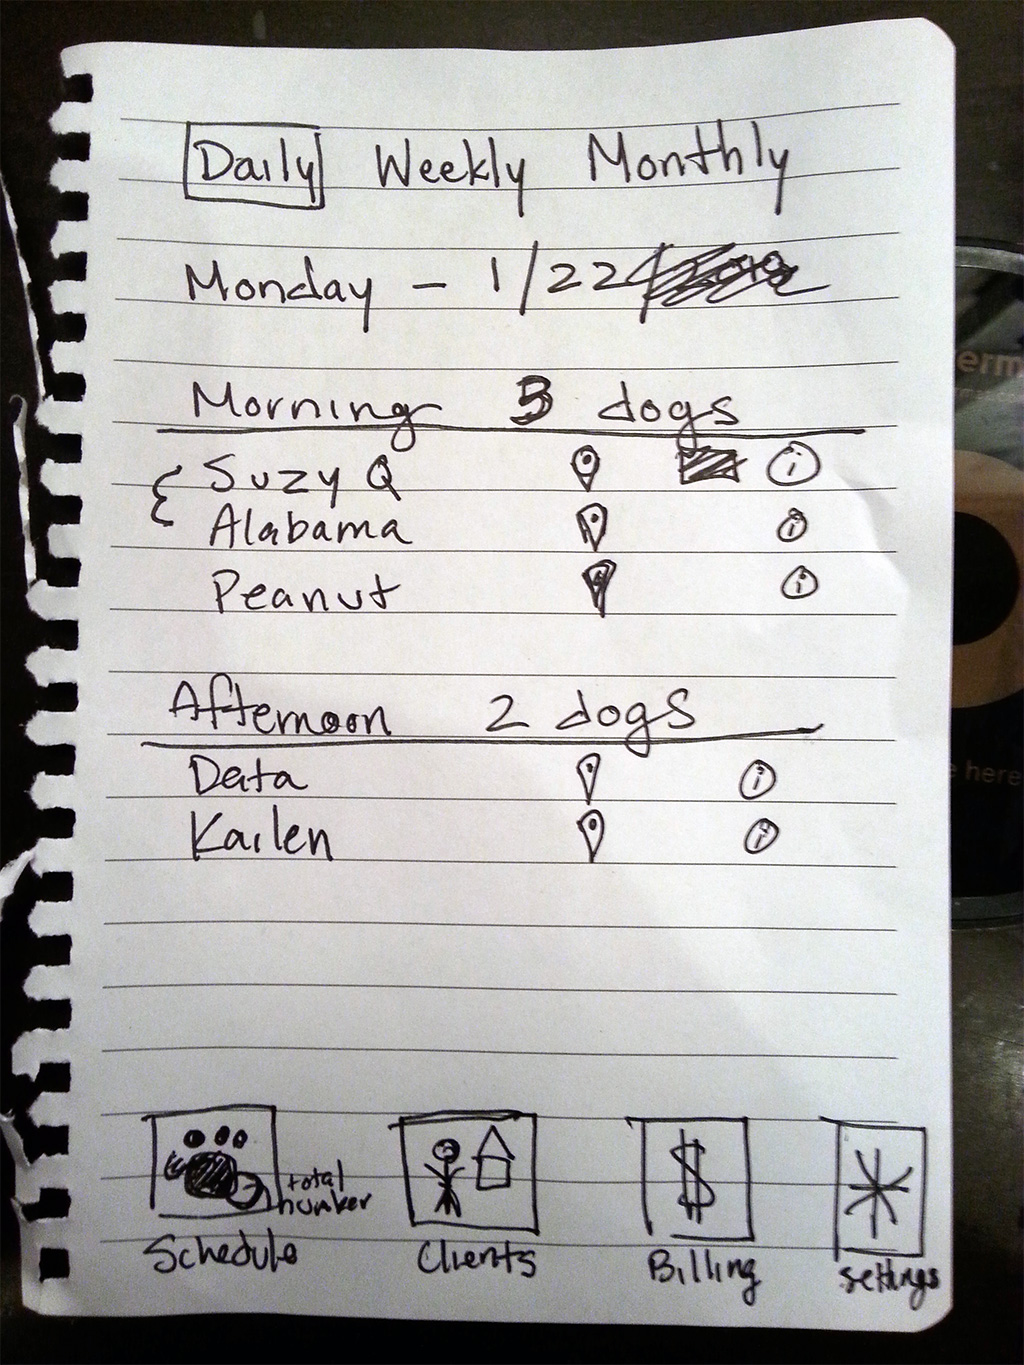 Daily Weekly Monthly
Monday - 1/22/
Morning 3 dogs
Suzy Q i
Alabama i
Peanut i
Afternoon 2 dogs
Data i
Kailen i
total
number
$
Schedule Clients Billing settings
erm
e here